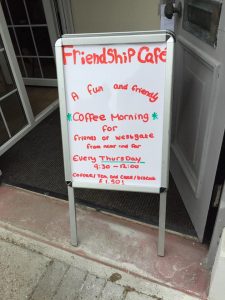 Friendship Café
A fun and friendly
*Coffee Morning*
for
friends of Westgate
from near and far
Every Thursday
9:30 - 12:00
Coffee/Tea and Cake/Biscuit
£1.50!